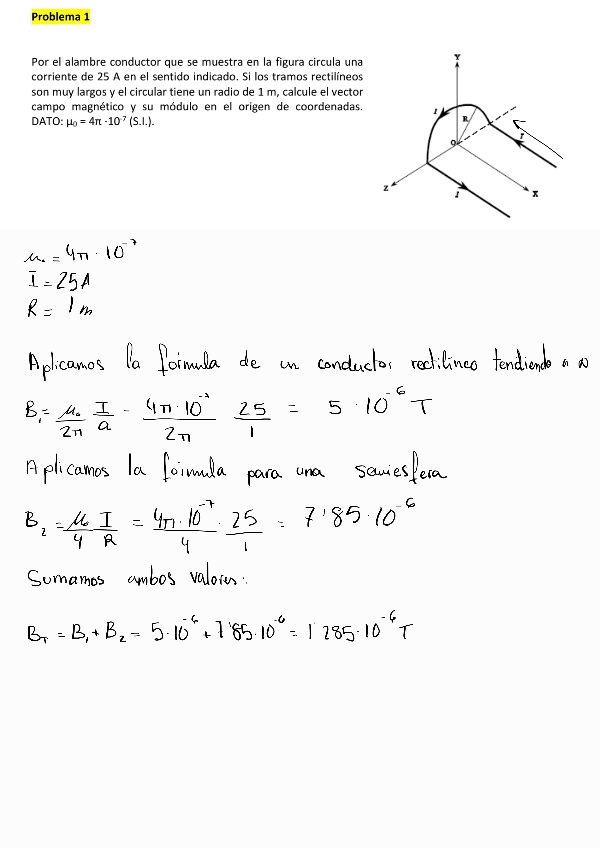 Problema 1
Por el alambre conductor que se muestra en la figura circula una
corriente de 25 A en el sentido indicado. Si los tramos rectilíneos
son muy largos y el circular tiene un radio de 1 m, calcule el vector
campo magnético y su módulo en el origen de coordenadas.
DATO: μ₀ = 4π ·10⁻⁷ (S.I.).
Y
I
R
O
I
Z
I
X
μ₀ = 4π · 10⁻⁷
I = 25A
R = 1 m
Aplicamos la fórmula de un conductor rectilíneo tendiendo a ∞
B₁ = μ₀/2π I/a = 4π·10⁻⁷/2π 25/1 = 5·10⁻⁶ T
Aplicamos la fórmula para una semiesfera
B₂ = μ₀/4 I/R = 4π·10⁻⁷/4 · 25/1 = 7'85·10⁻⁶
Sumamos ambos valores:
B_T = B₁ + B₂ = 5·10⁻⁶ + 7'85·10⁻⁶ = 1'285·10⁻⁶ T